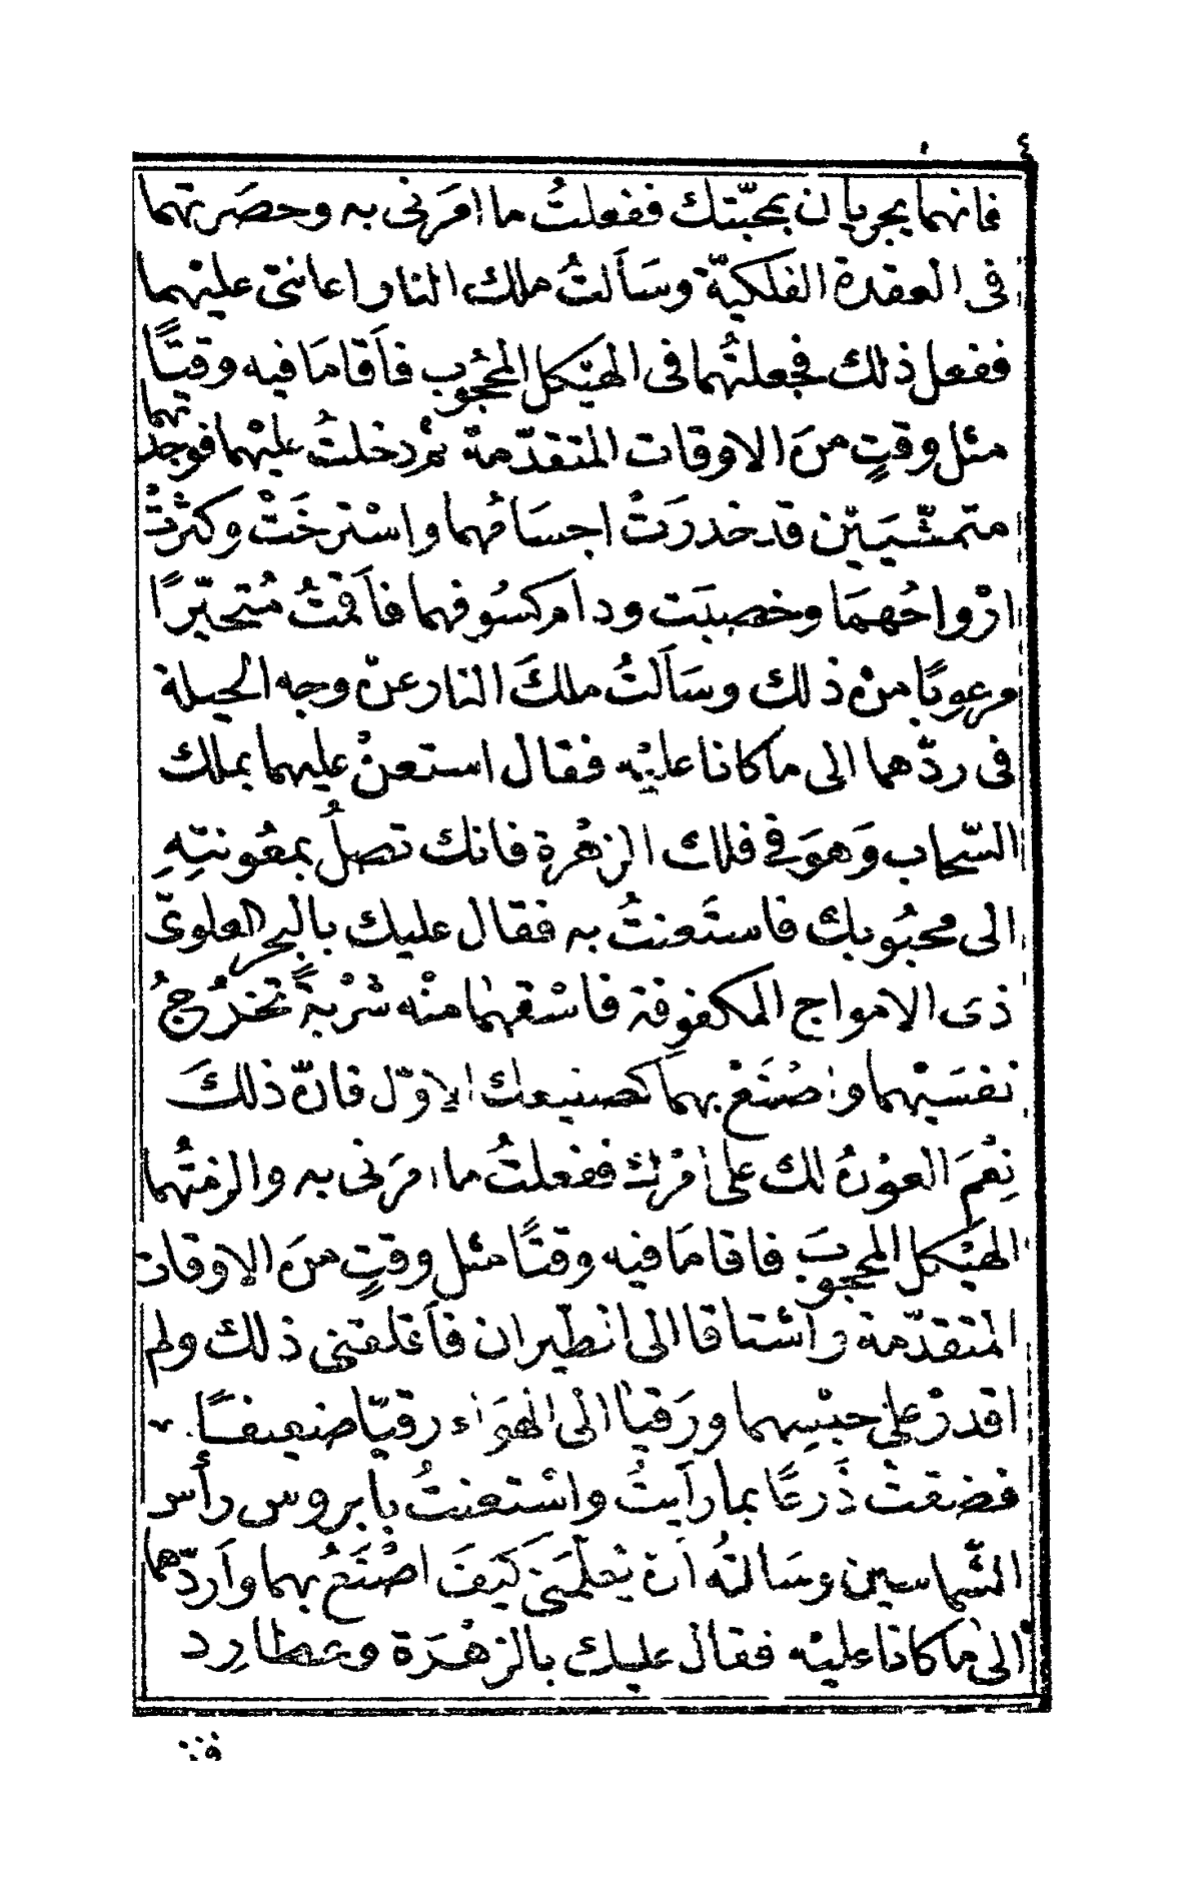 ٤
فانهما يجريان بمحبّتك ففعلتُ ما امَرنى به وحصَرتهما
فى العقدة الفلكيّة وسَألتُ ملك النار اعانتى عليْهما
ففعل ذلك فجعلتُهما فى الهيْكل المحْجُوب فأقامَا فيه وقتًا
مثل وقتٍ منَ الاوقات المتقدّمة ثم دخلتُ عليْهما فوجدْتهما
متمشّيَيْن قد خدرَتْ اجسَامُهما واسْترخَتْ وكثرتْ
ارْواحُهمَا وخصبَت ودام كسُوفهما فأقمْتُ مُتحيّرًا
مرعوبًا منْ ذلك وسَألتُ ملكَ النار عنْ وجه الحيلة
فى ردّهما الى ما كانا عليْه فقال استعنْ عليهما بملك
السّحاب وَهوَ فى فلك الزهْرة فانك تصلُ بمعُونتِهِ
الى محبُوبك فاستَعنتُ به فقال عليك بالبحر العلوىّ
ذى الامواج المكفوفة فاسْقهما منْه شرْبةً تخرُجُ
نفسَيْهما واصْنَعْ بهمَا كصنيعك الاوّل فانّ ذلكَ
نِعْمَ العوْنُ لك على امْرك ففعلتُ ما امرَنى به والزمتُهما
الهيْكل المحجوبَ فاقامَا فيه وقتًا مثل وقتٍ منَ الاوقات
المتقدّمة واشتاقا الى الطّيران فأقلقنى ذلك ولم
اقدرْ على حبْسِهما ورَقيَا الى الهوَاء رقيّا ضعيفًا
فضقتُ ذَرعًا بما رأيتُ واسْتعنتُ بابروس رأس
الشّماسين وسَالتُه أن يُعلّمَنى كيْفَ اصْنَعُ بهما وأردّهما
الى ما كانا عليْه فقال عليك بالزهْرَة وعطارِد